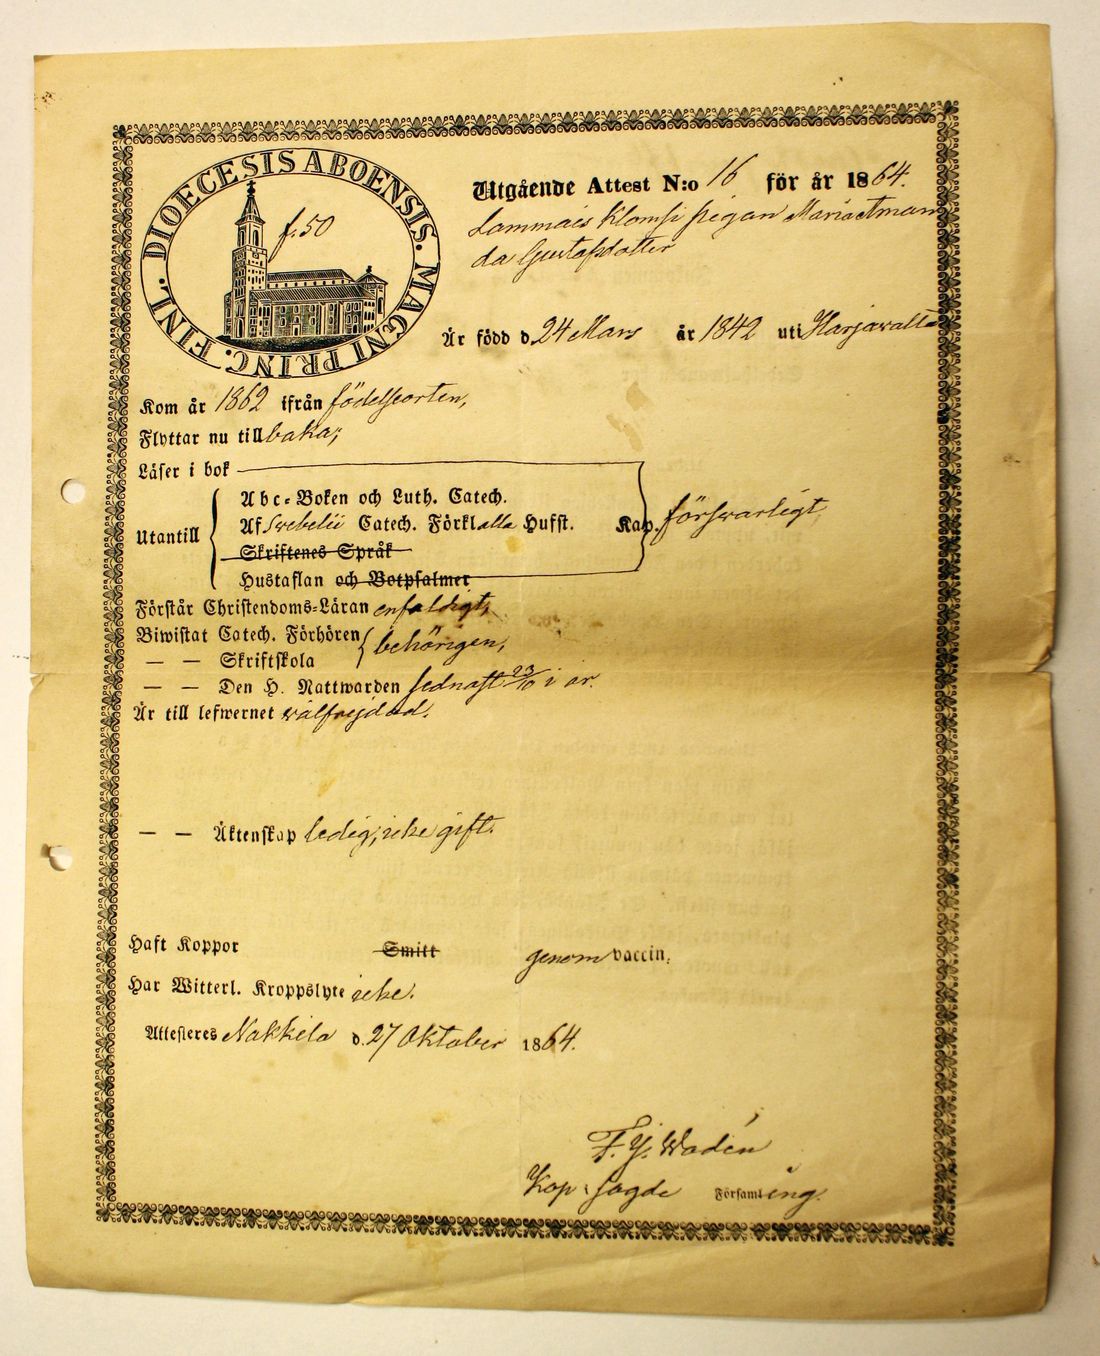 DIOECESIS ABOENSIS. MAGNI PRINC. FINL.
f. 50
Utgående Attest N:o 16 för år 1864.
Lammais Klomsi pigan Maria Aman
da Gustafsdotter
Är född d. 24 Mars år 1842 uti Harjawalta
Kom år 1862 ifrån födelseorten,
Flyttar nu tillbaka;
Läser i bok
Abc-Boken och Luth. Catech.
Utantill Af Swebelii Catech. Förkl alla Hufst. Kap. förswarligt
Skriftenes Språk
Hustaflan och Botpsalmer
Förstår Christendoms-Läran enfaldigt,
Biwistat Catech. Förhören behörigen,
— — Skriftskola
— — Den H. Nattwarden sednast 23/10 i år.
Är till lefwernet wälfrejdad.
— — Äktenskap ledig, icke gift.
Haft Koppor Smitt genom vaccin.
Har Witterl. Kroppslyte icke.
Attesteres Nakkila d. 27 Oktober 1864.
F. Y. Wadén
Kap. i sagde Församling.